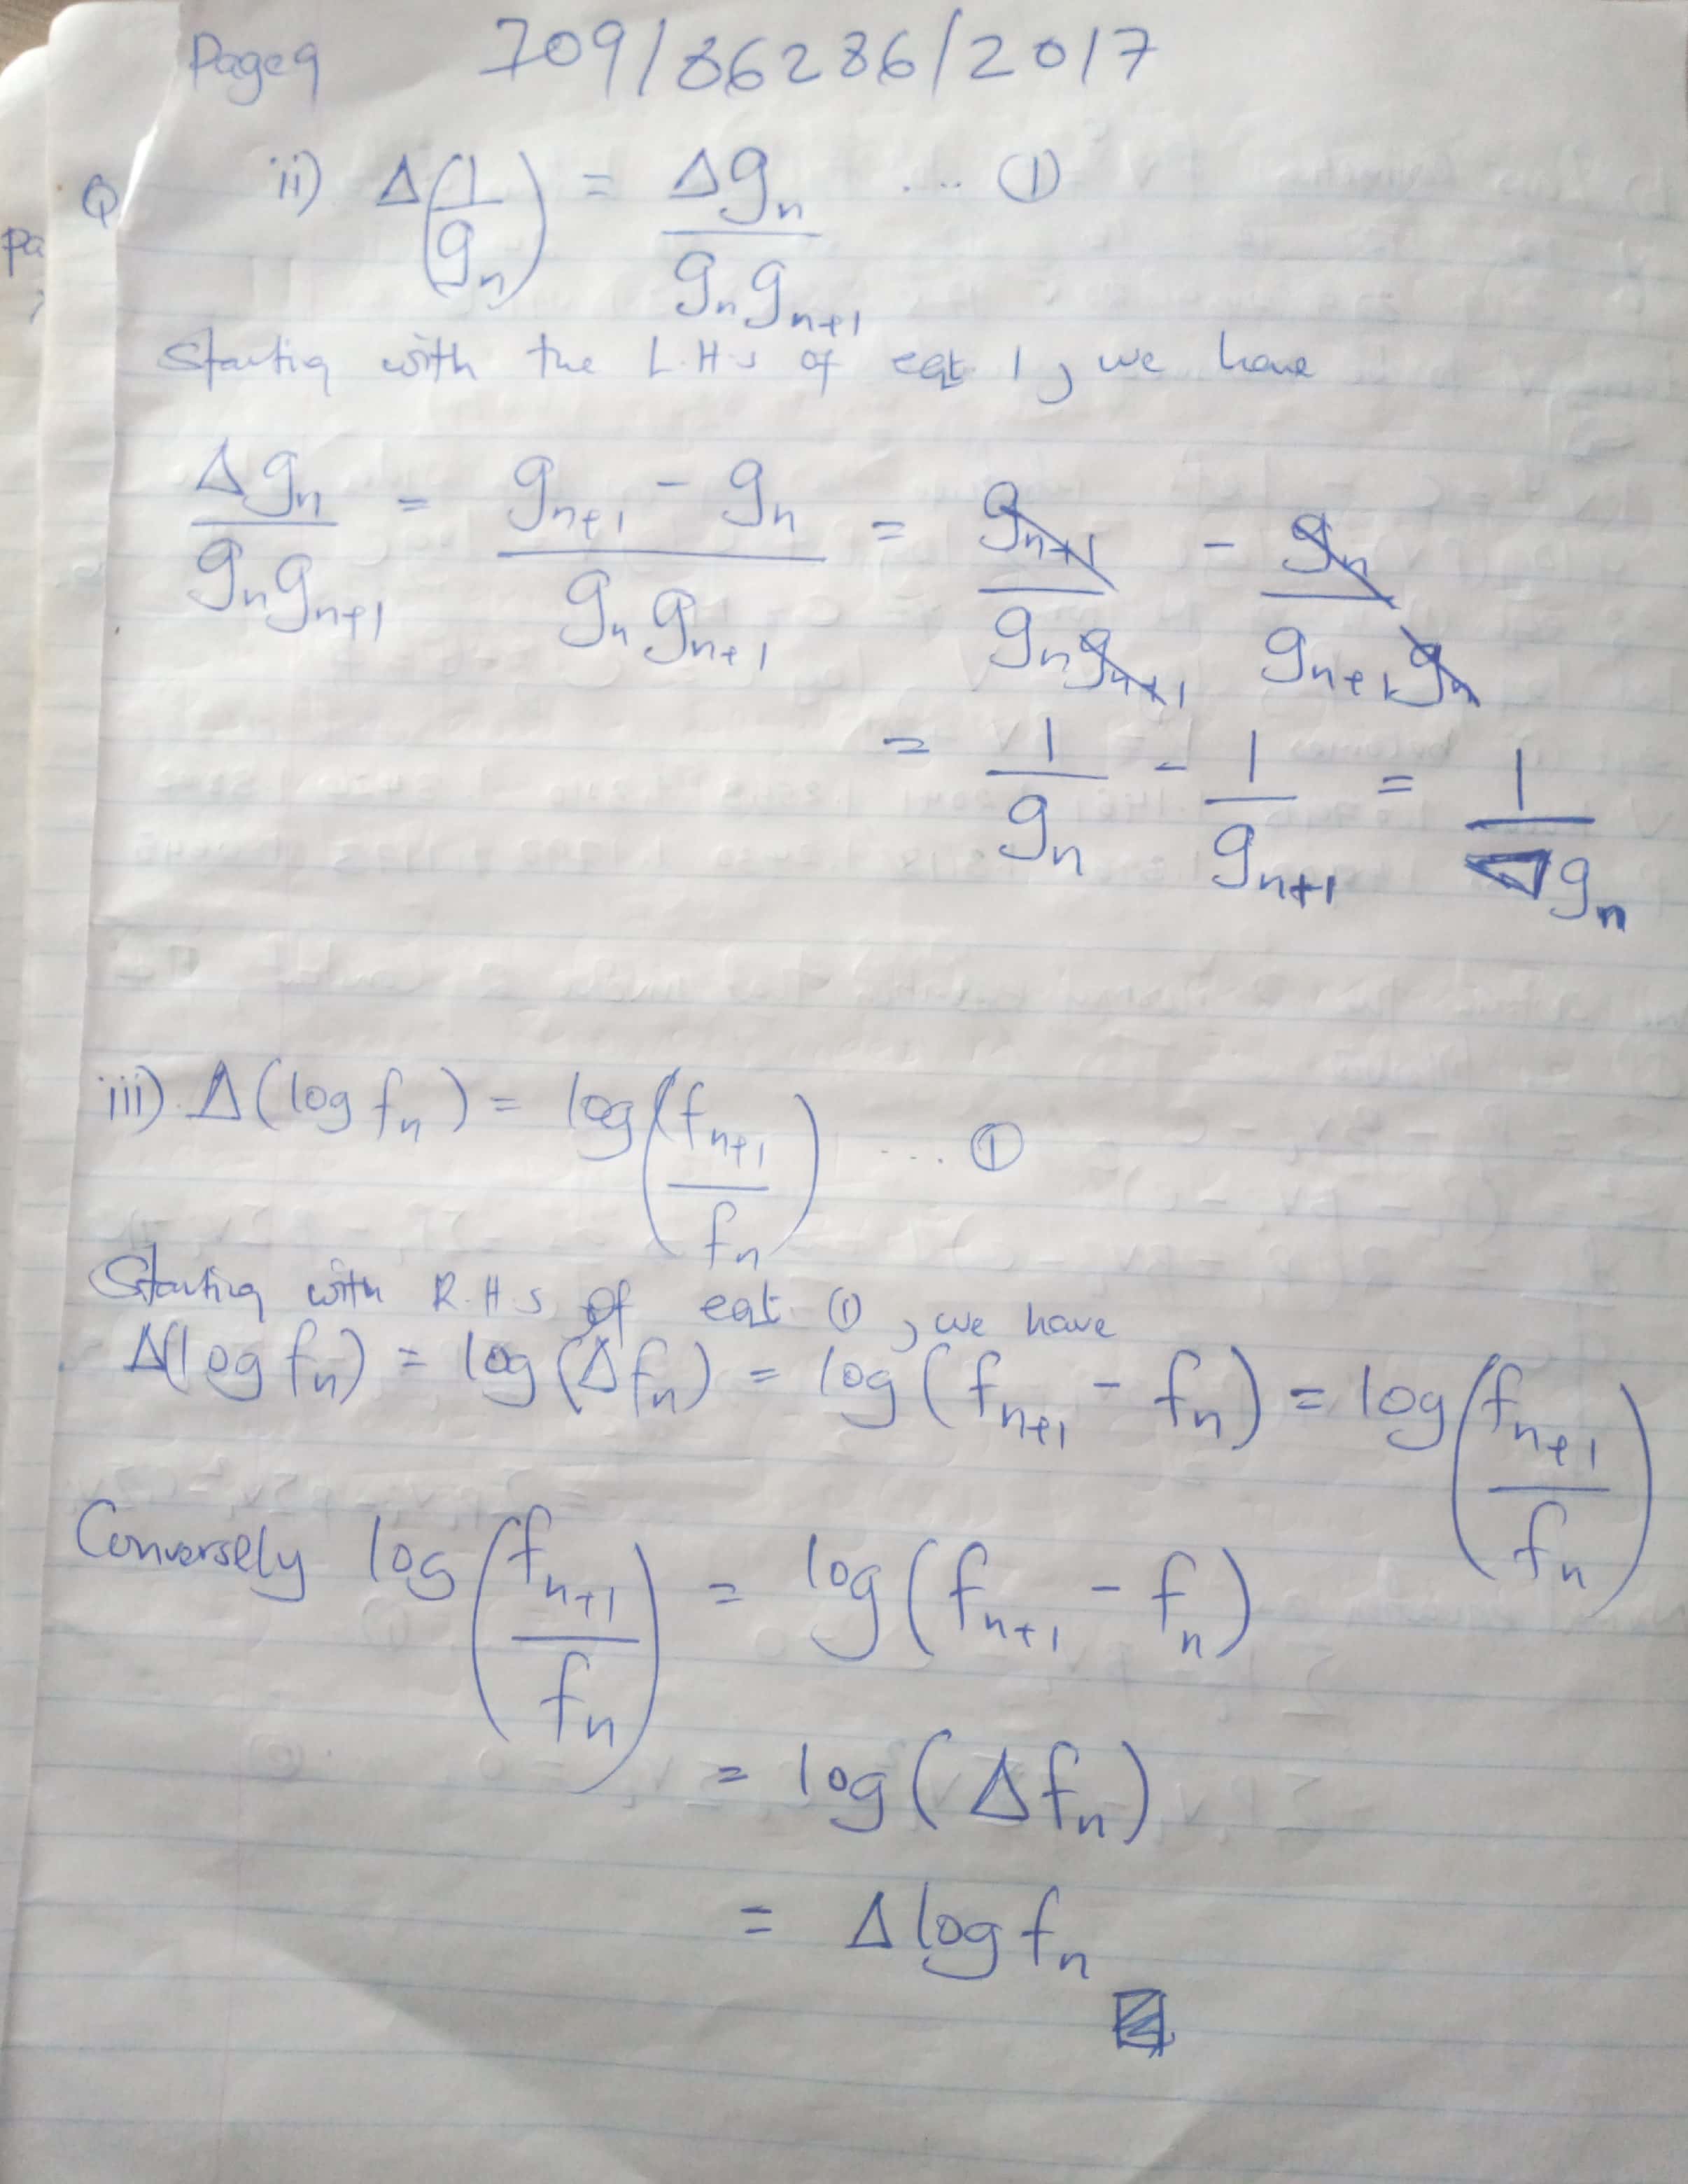 Page 9 I09/86286/2017
Q ii) Δ(1/gₙ) = Δgₙ/(gₙgₙ₊₁) .... ①
pa
Starting with the L.H.S of eqt. 1, we have
Δgₙ/(gₙgₙ₊₁) = (gₙ₊₁ - gₙ)/(gₙgₙ₊₁) = gₙ₊₁/(gₙgₙ₊₁) - gₙ/(gₙ₊₁gₙ)
= 1/gₙ - 1/gₙ₊₁ = 1/(Δgₙ)
iii) Δ(log fₙ) = log(fₙ₊₁/fₙ) .... ①
Starting with R.H.S of eqt. ①, we have
Δ(log fₙ) = log(Δfₙ) = log(fₙ₊₁ - fₙ) = log(fₙ₊₁/fₙ)
Conversely log(fₙ₊₁/fₙ) = log(fₙ₊₁ - fₙ)
= log(Δfₙ)
= Δ log fₙ